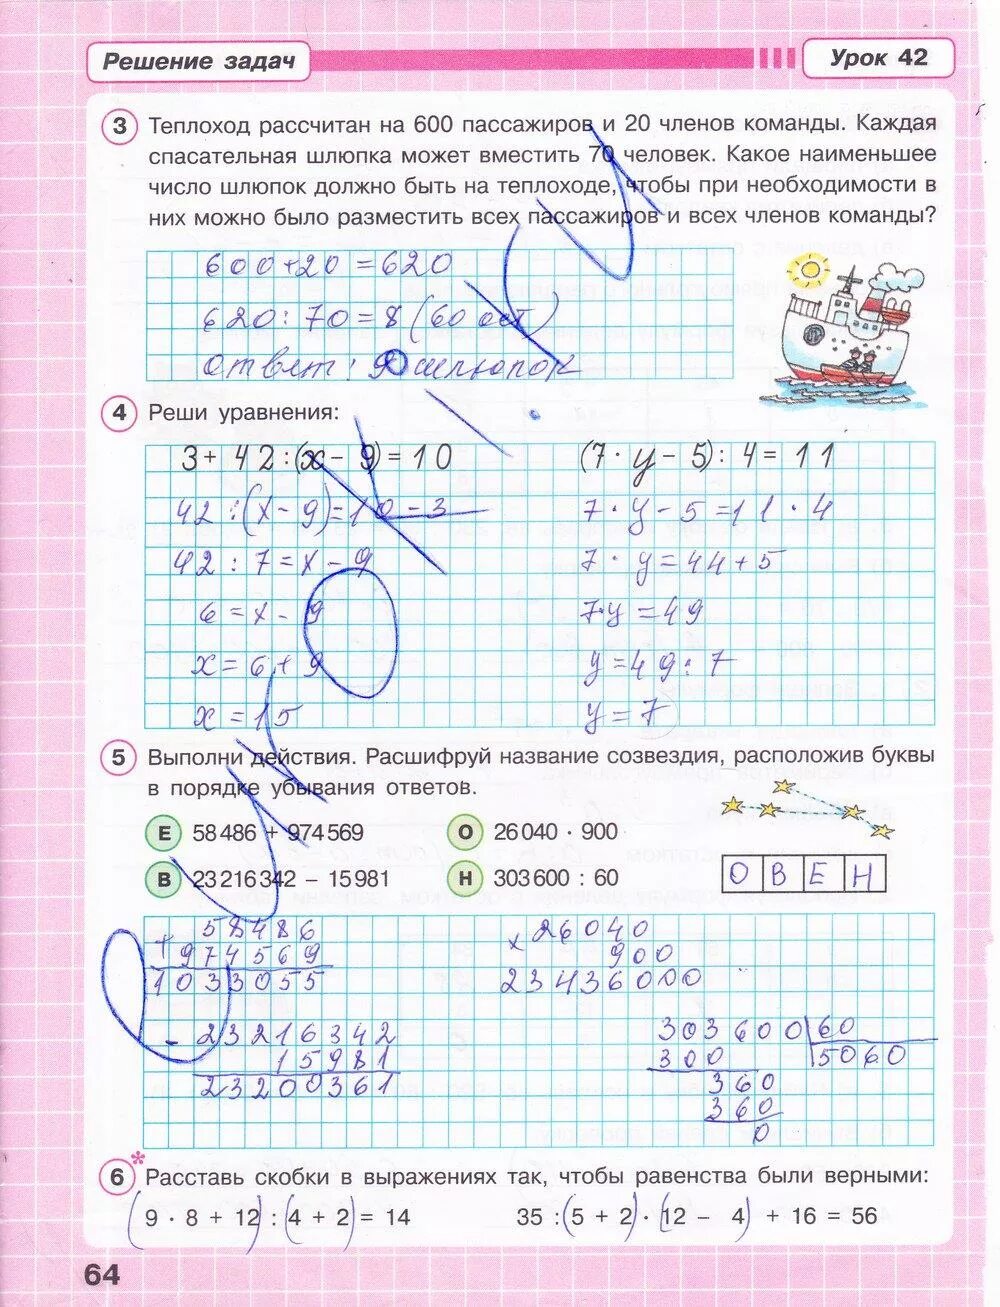 Решение задач
Урок 42
3 Теплоход рассчитан на 600 пассажиров и 20 членов команды. Каждая
спасательная шлюпка может вместить 70 человек. Какое наименьшее
число шлюпок должно быть на теплоходе, чтобы при необходимости в
них можно было разместить всех пассажиров и всех членов команды?
600+20 = 620
620 : 70 = 8 (60 ост)
ответ: 9 шлюпок
4 Реши уравнения:
3 + 42 : (x - 9) = 10
42 : (x - 9) = 10 - 3
42 : 7 = x - 9
6 = x - 9
x = 6 + 9
x = 15
(7 · y - 5) : 4 = 11
7 · y - 5 = 11 · 4
7 · y = 44 + 5
7·y = 49
y = 49 : 7
y = 7
5 Выполни действия. Расшифруй название созвездия, расположив буквы
в порядке убывания ответов.
Е 58 486 + 974 569
О 26 040 · 900
В 23 216 342 – 15 981
Н 303 600 : 60
О В Е Н
+ 58486
974569
1033055
× 26040
900
23436000
- 23216342
15981
23200361
303600 60
300 5060
360
360
0
6* Расставь скобки в выражениях так, чтобы равенства были верными:
(9 · 8 + 12) : (4 + 2) = 14
35 : (5 + 2) · (12 – 4) + 16 = 56
64